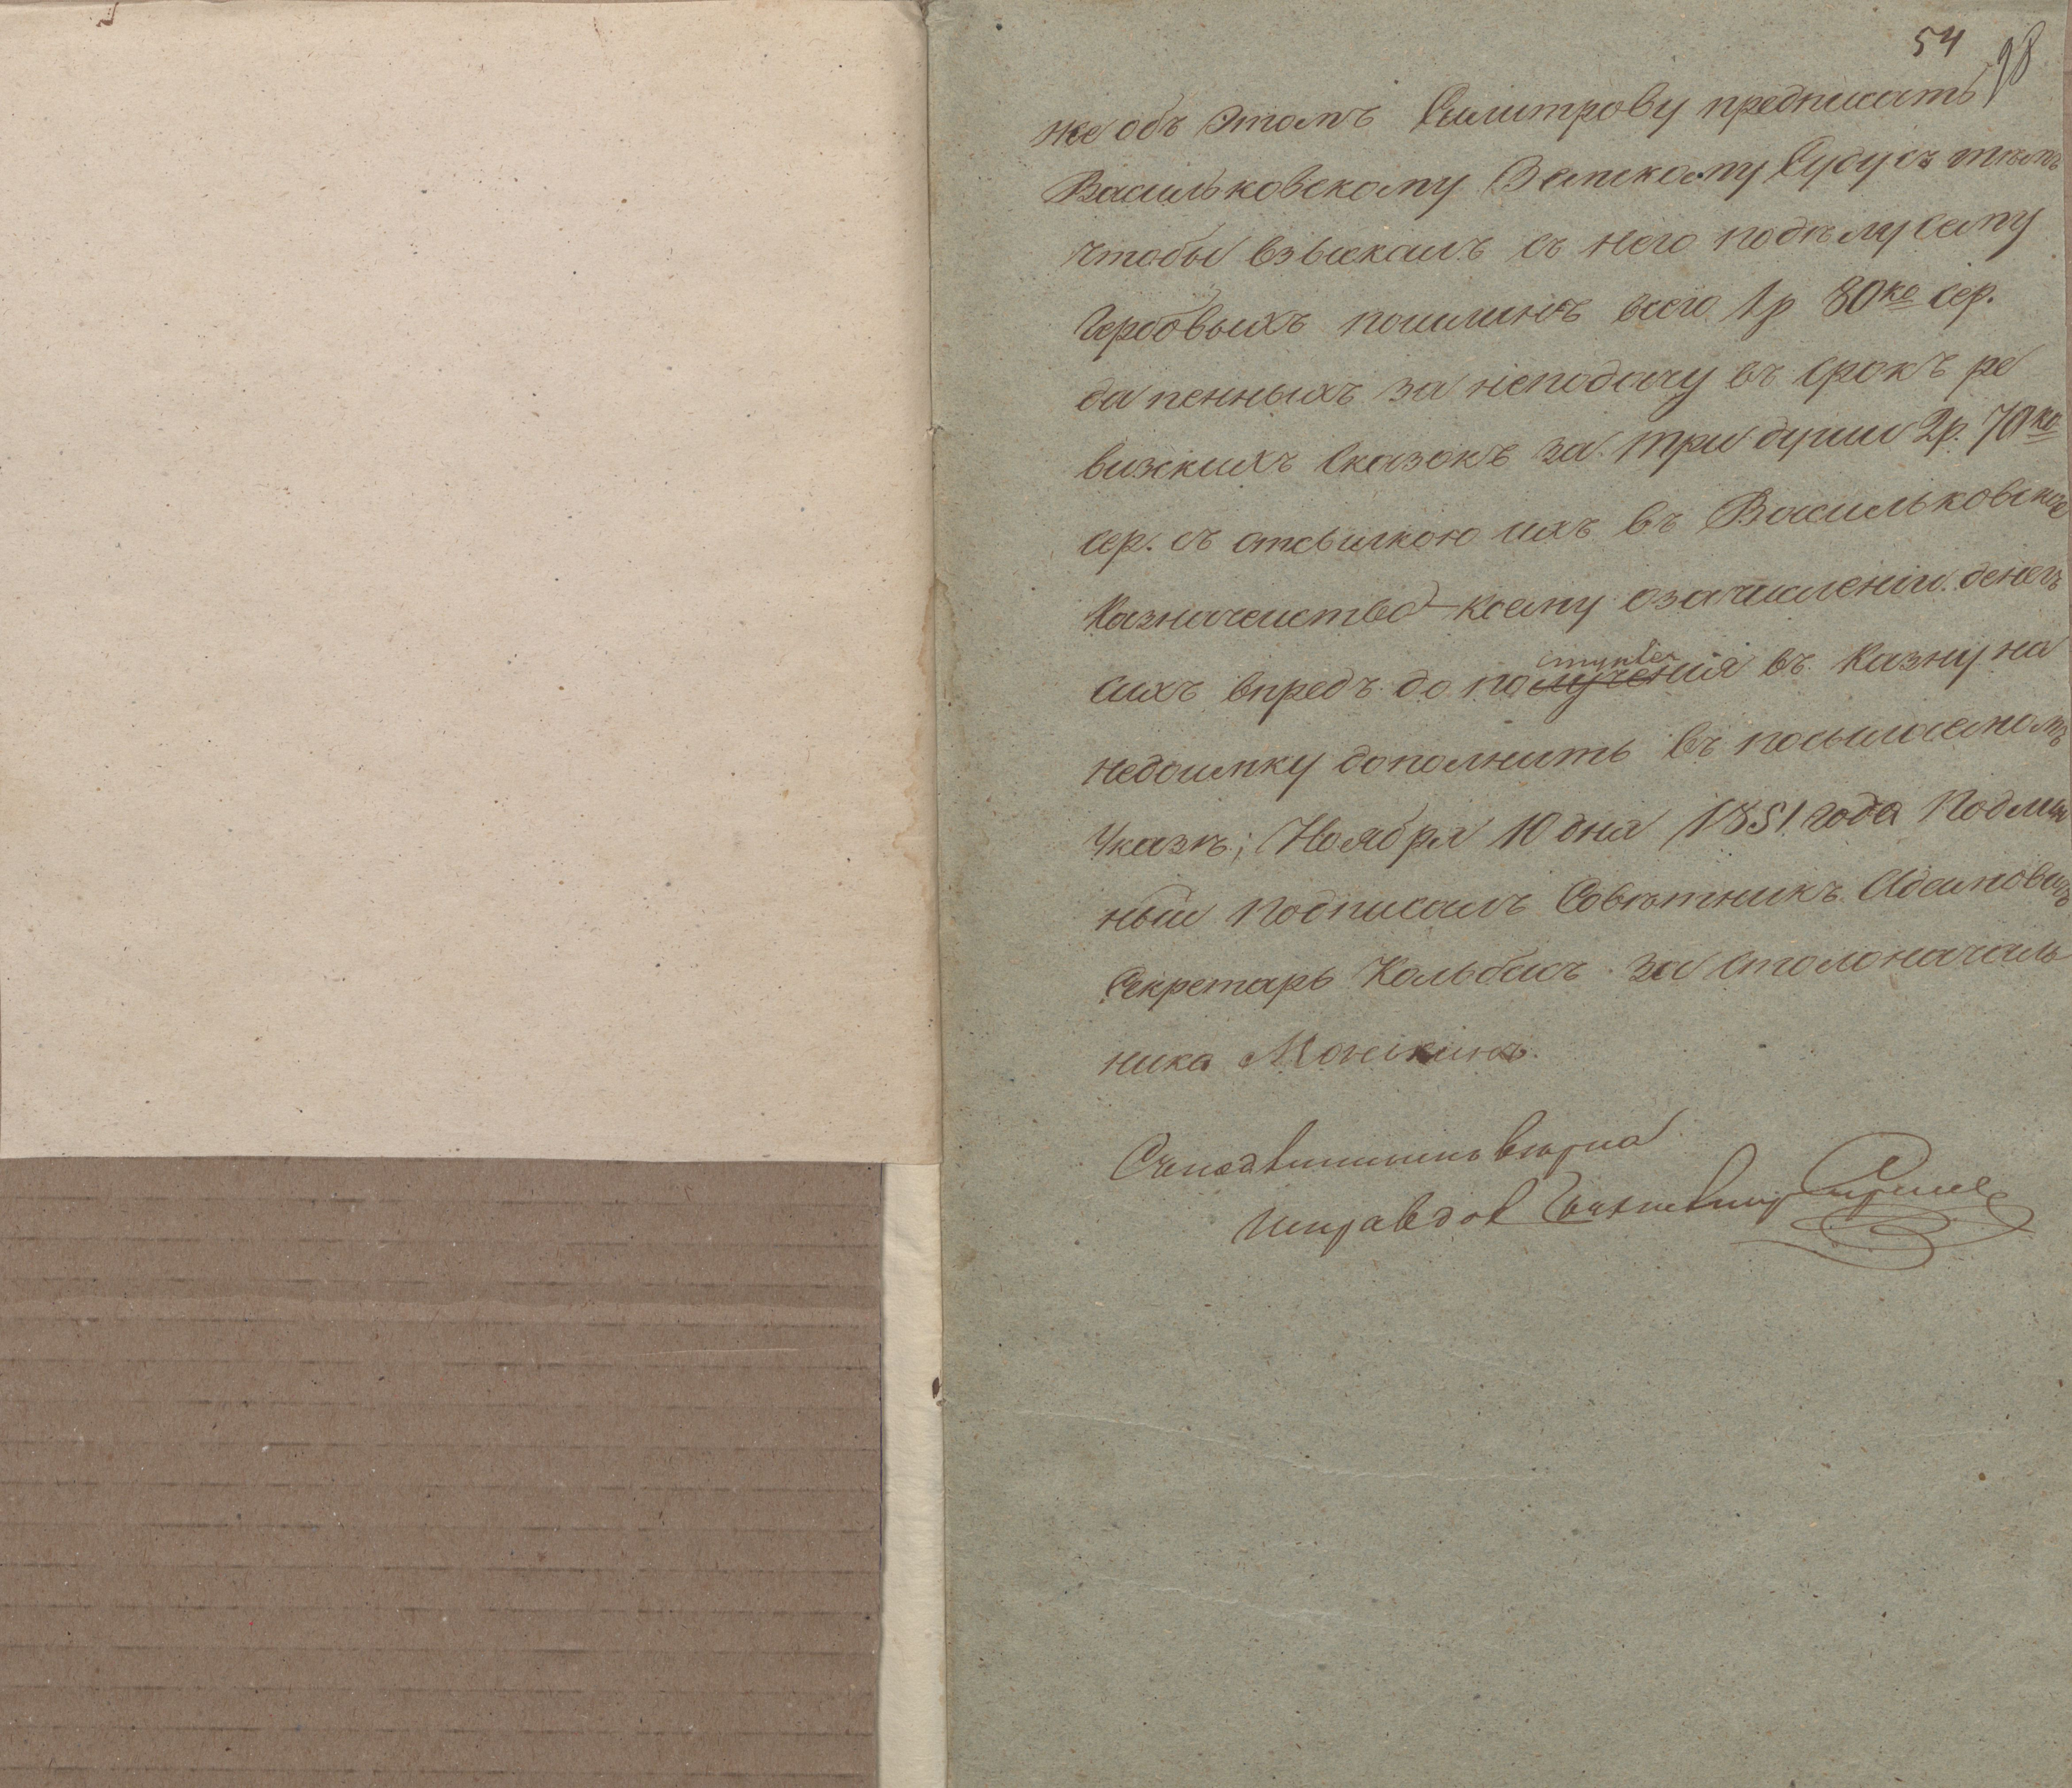 54 98
же объ этомъ Силитрову предписать
Васильковскому Земскому Суду съ тѣмъ
чтобы взыскалъ съ него по дѣлу сему
Гербовыхъ пошлинъ всего 1р 80 ко сер.
да пенныхъ за неподачу въ срокъ ре
визскихъ сказокъ за три души 2р. 70 ко
сер. съ отсылкою ихъ въ Васильковское
Казначейство коему о зачисленіи денегъ
сихъ впредъ до поступленія въ Казну на
недоимку дополнить въ посылаемомъ
Указѣ; Ноября 10 дня 1851 года Подлин
ный подписалъ Совѣтникъ
Секретарь за столоначаль
ника
Съ подлиннымъ вѣрна